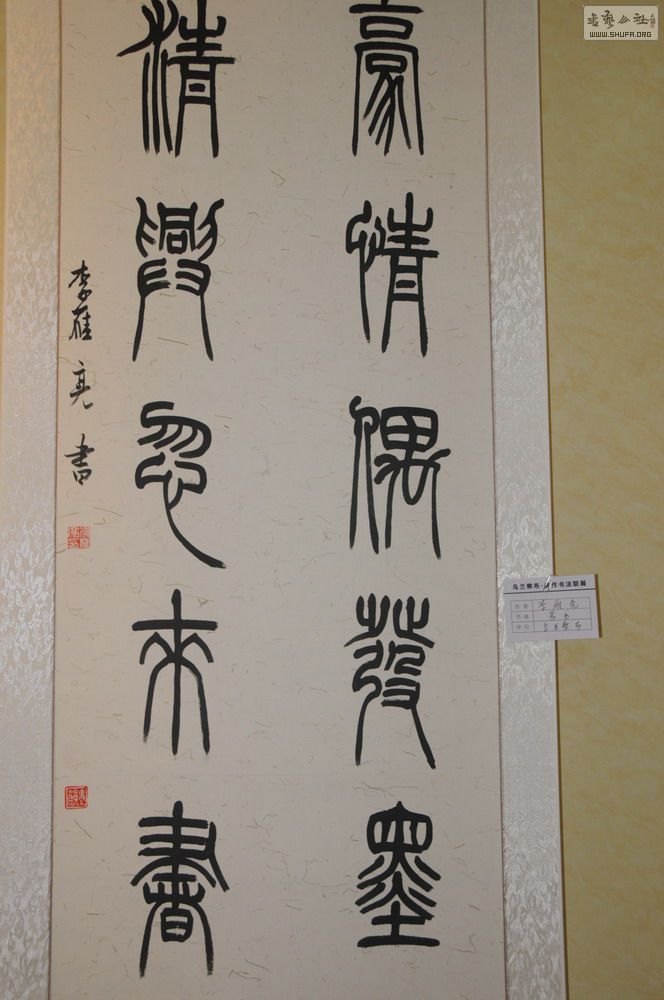 豪情偶發墨
清興忽來書
李雁亮書
乌兰察布·焦作书法联展
書藝公社
WWW.SHUFA.ORG